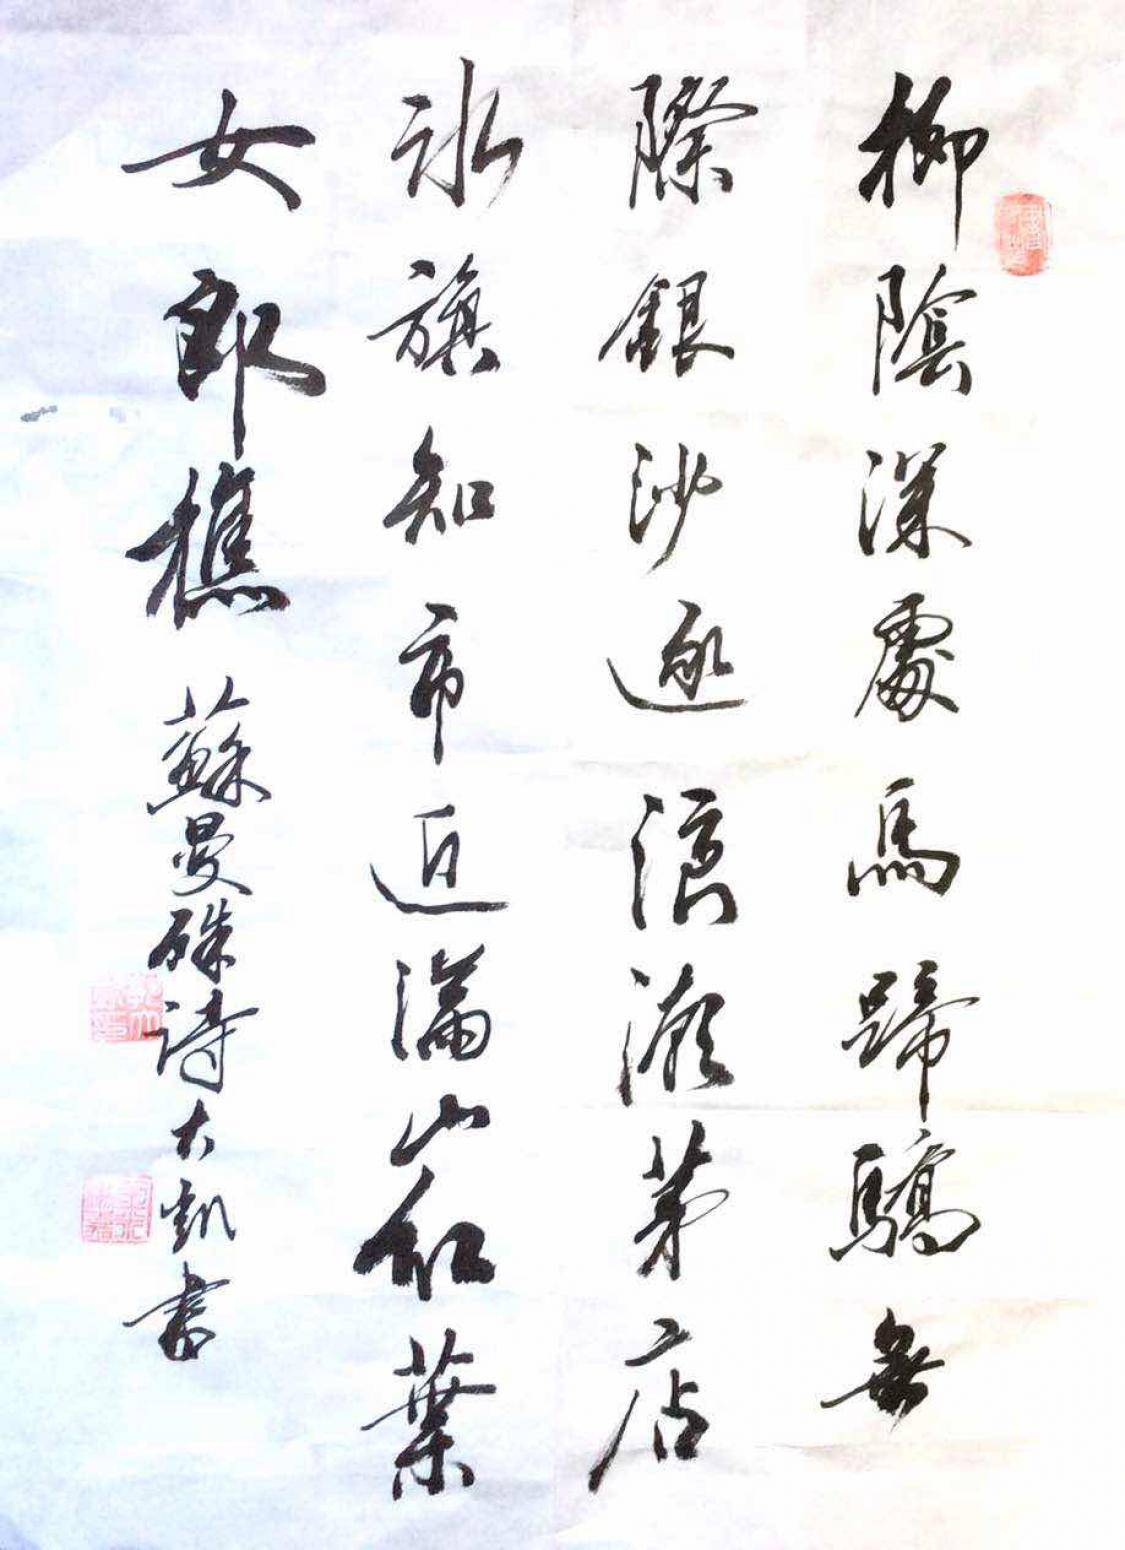 柳陰深處馬蹄驕無
際銀沙逐浪潮茅店
冰旗知市近滿山紅葉
女郎樵 蘇曼殊詩大凱書